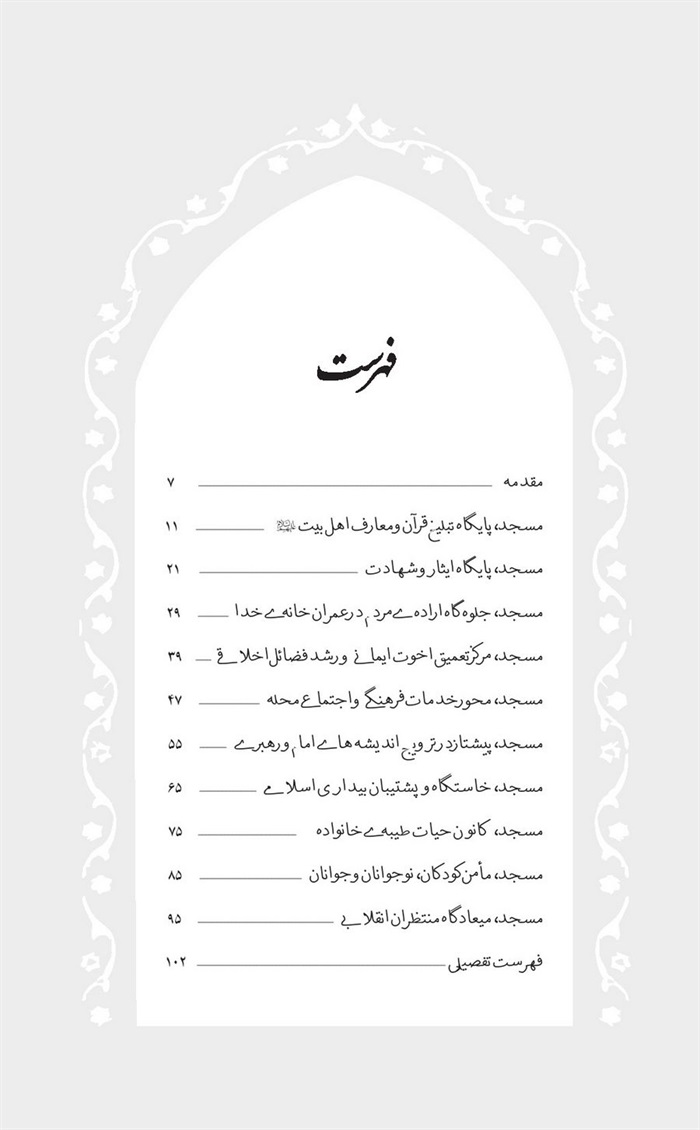 فهرست
مقدمه ۷
مسجد، پایگاه تبلیغ قرآن و معارف اهل بیت ۱۱
مسجد، پایگاه ایثار و شهادت ۲۱
مسجد، جلوه‌گاه اراده‌ی مردم در عمران خانه‌ی خدا ۲۹
مسجد، مرکز تعمیق اخوت ایمانی و رشد فضائل اخلاقی ۳۹
مسجد، محور خدمات فرهنگی و اجتماعی محله ۴۷
مسجد، پیشتاز در ترویج اندیشه های امام و رهبری ۵۵
مسجد، خاستگاه و پشتیبان بیداری اسلامی ۶۵
مسجد، کانون حیات طیبه‌ی خانواده ۷۵
مسجد، مأمن کودکان، نوجوانان و جوانان ۸۵
مسجد، میعادگاه منتظران انقلابی ۹۵
فهرست تفصیلی ۱۰۲